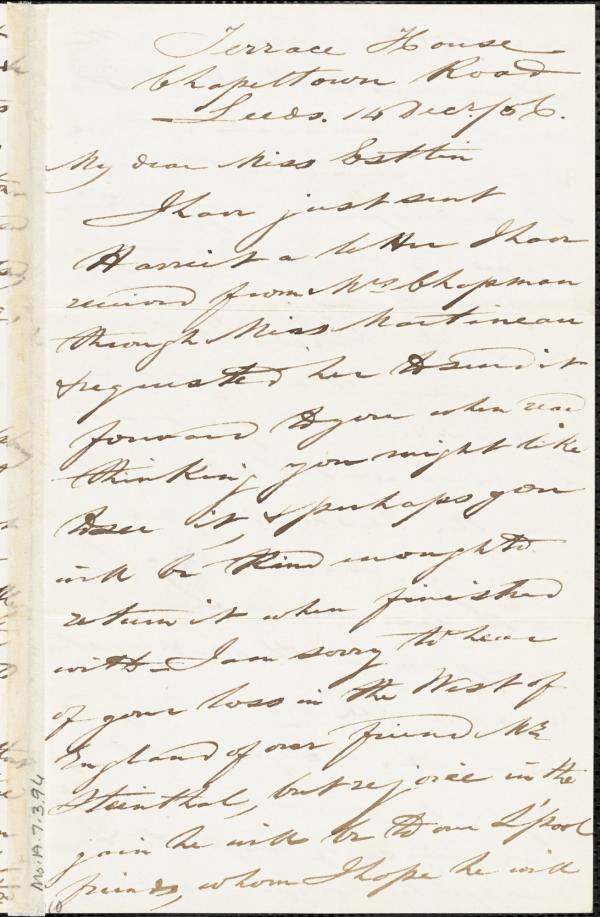 Terrace House
Chapeltown Road
Leeds. 14 Decr./56.
My dear Miss Estlin
I have just sent
Harriet a letter I have
received from Mrs Chapman
through Miss Martineau
& requested her to send it
forward to you when read
thinking you might like
to see it, & perhaps you
will be kind enough to
return it when finished
with – I am sorry to hear
of your loss in the West of
England of our friend Mr
Steinthal, but rejoice in the
gain he will be to our L'pool
friends, whom I hope he will
Ms.A.7.3.94